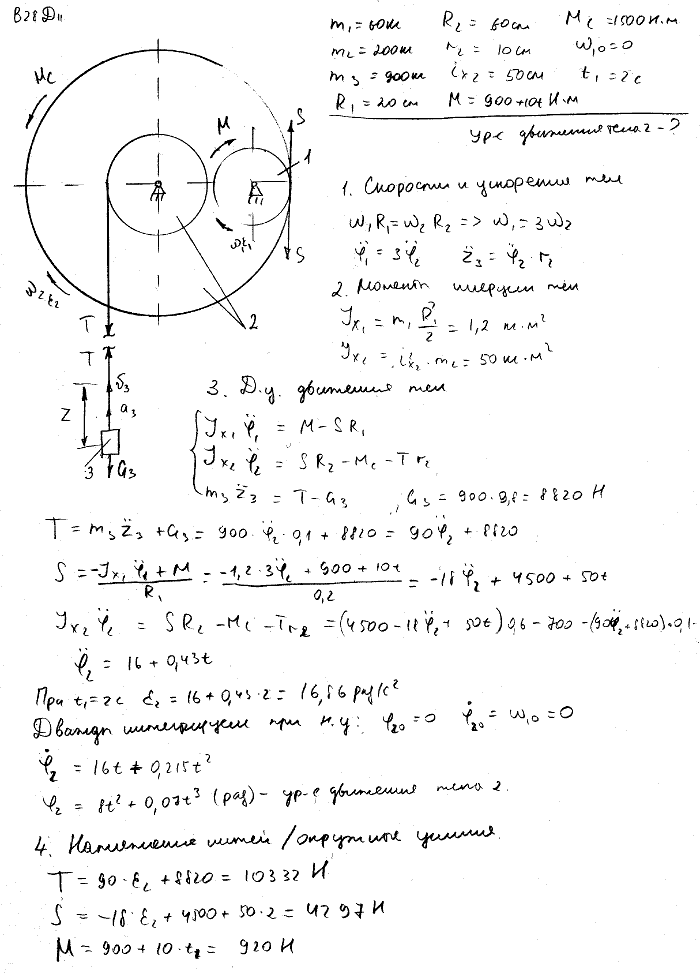 В28 Д11
m₁ = 60кг R₂ = 60см M_c = 1500 Н·м
m₂ = 200кг r₂ = 10см ω₁₀ = 0
m₃ = 900кг i_x2 = 50см t₁ = 2с
R₁ = 20см M = 900+10t Н·м
ур-е движения тела 2 - ?
Mc
M
S
1
ω₁ε₁
S
ω₂ε₂
2
T
T
υ₃
a₃
Z
3
G₃
1. Скорости и ускорения тел
ω₁R₁ = ω₂R₂ => ω₁ = 3ω₂
φ̈₁ = 3φ̈₂ z̈₃ = φ̈₂·r₂
2. Моменты инерции тел
J_x1 = m₁ R₁²/2 = 1,2 кг·м²
J_x2 = i²_x2·m₂ = 50 кг·м²
3. Д.у. движения тел
J_x1 φ̈₁ = M - SR₁
J_x2 φ̈₂ = SR₂ - Mc - Tr₂
m₃z̈₃ = T - G₃ , G₃ = 900·9,8 = 8820 Н
T = m₃z̈₃ + G₃ = 900·φ̈₂·0,1 + 8820 = 90φ̈₂ + 8820
S = (-J_x1 φ̈₁ + M)/R₁ = (-1,2·3φ̈₂ + 900 + 10t)/0,2 = -18φ̈₂ + 4500 + 50t
J_x2 φ̈₂ = SR₂ - Mc - Tr₂ = (4500 - 18φ̈₂ + 50t)0,6 - 700 - (90φ̈₂ + 8820)·0,1
φ̈₂ = 16 + 0,43t
При t₁ = 2c ε₂ = 16 + 0,43·2 = 16,86 рад/с²
Дважды интегрируем при н.у: φ₂₀ = 0 φ̇₂₀ = ω₁₀ = 0
φ̇₂ = 16t + 0,215t²
φ₂ = 8t² + 0,07t³ (рад) - ур-е движения тела 2.
4. Натяжение нитей / окружные усилия.
T = 90·ε₂ + 8820 = 10332 Н
S = -18·ε₂ + 4500 + 50·2 = 4297 Н
M = 900 + 10·t₂ = 920 Н